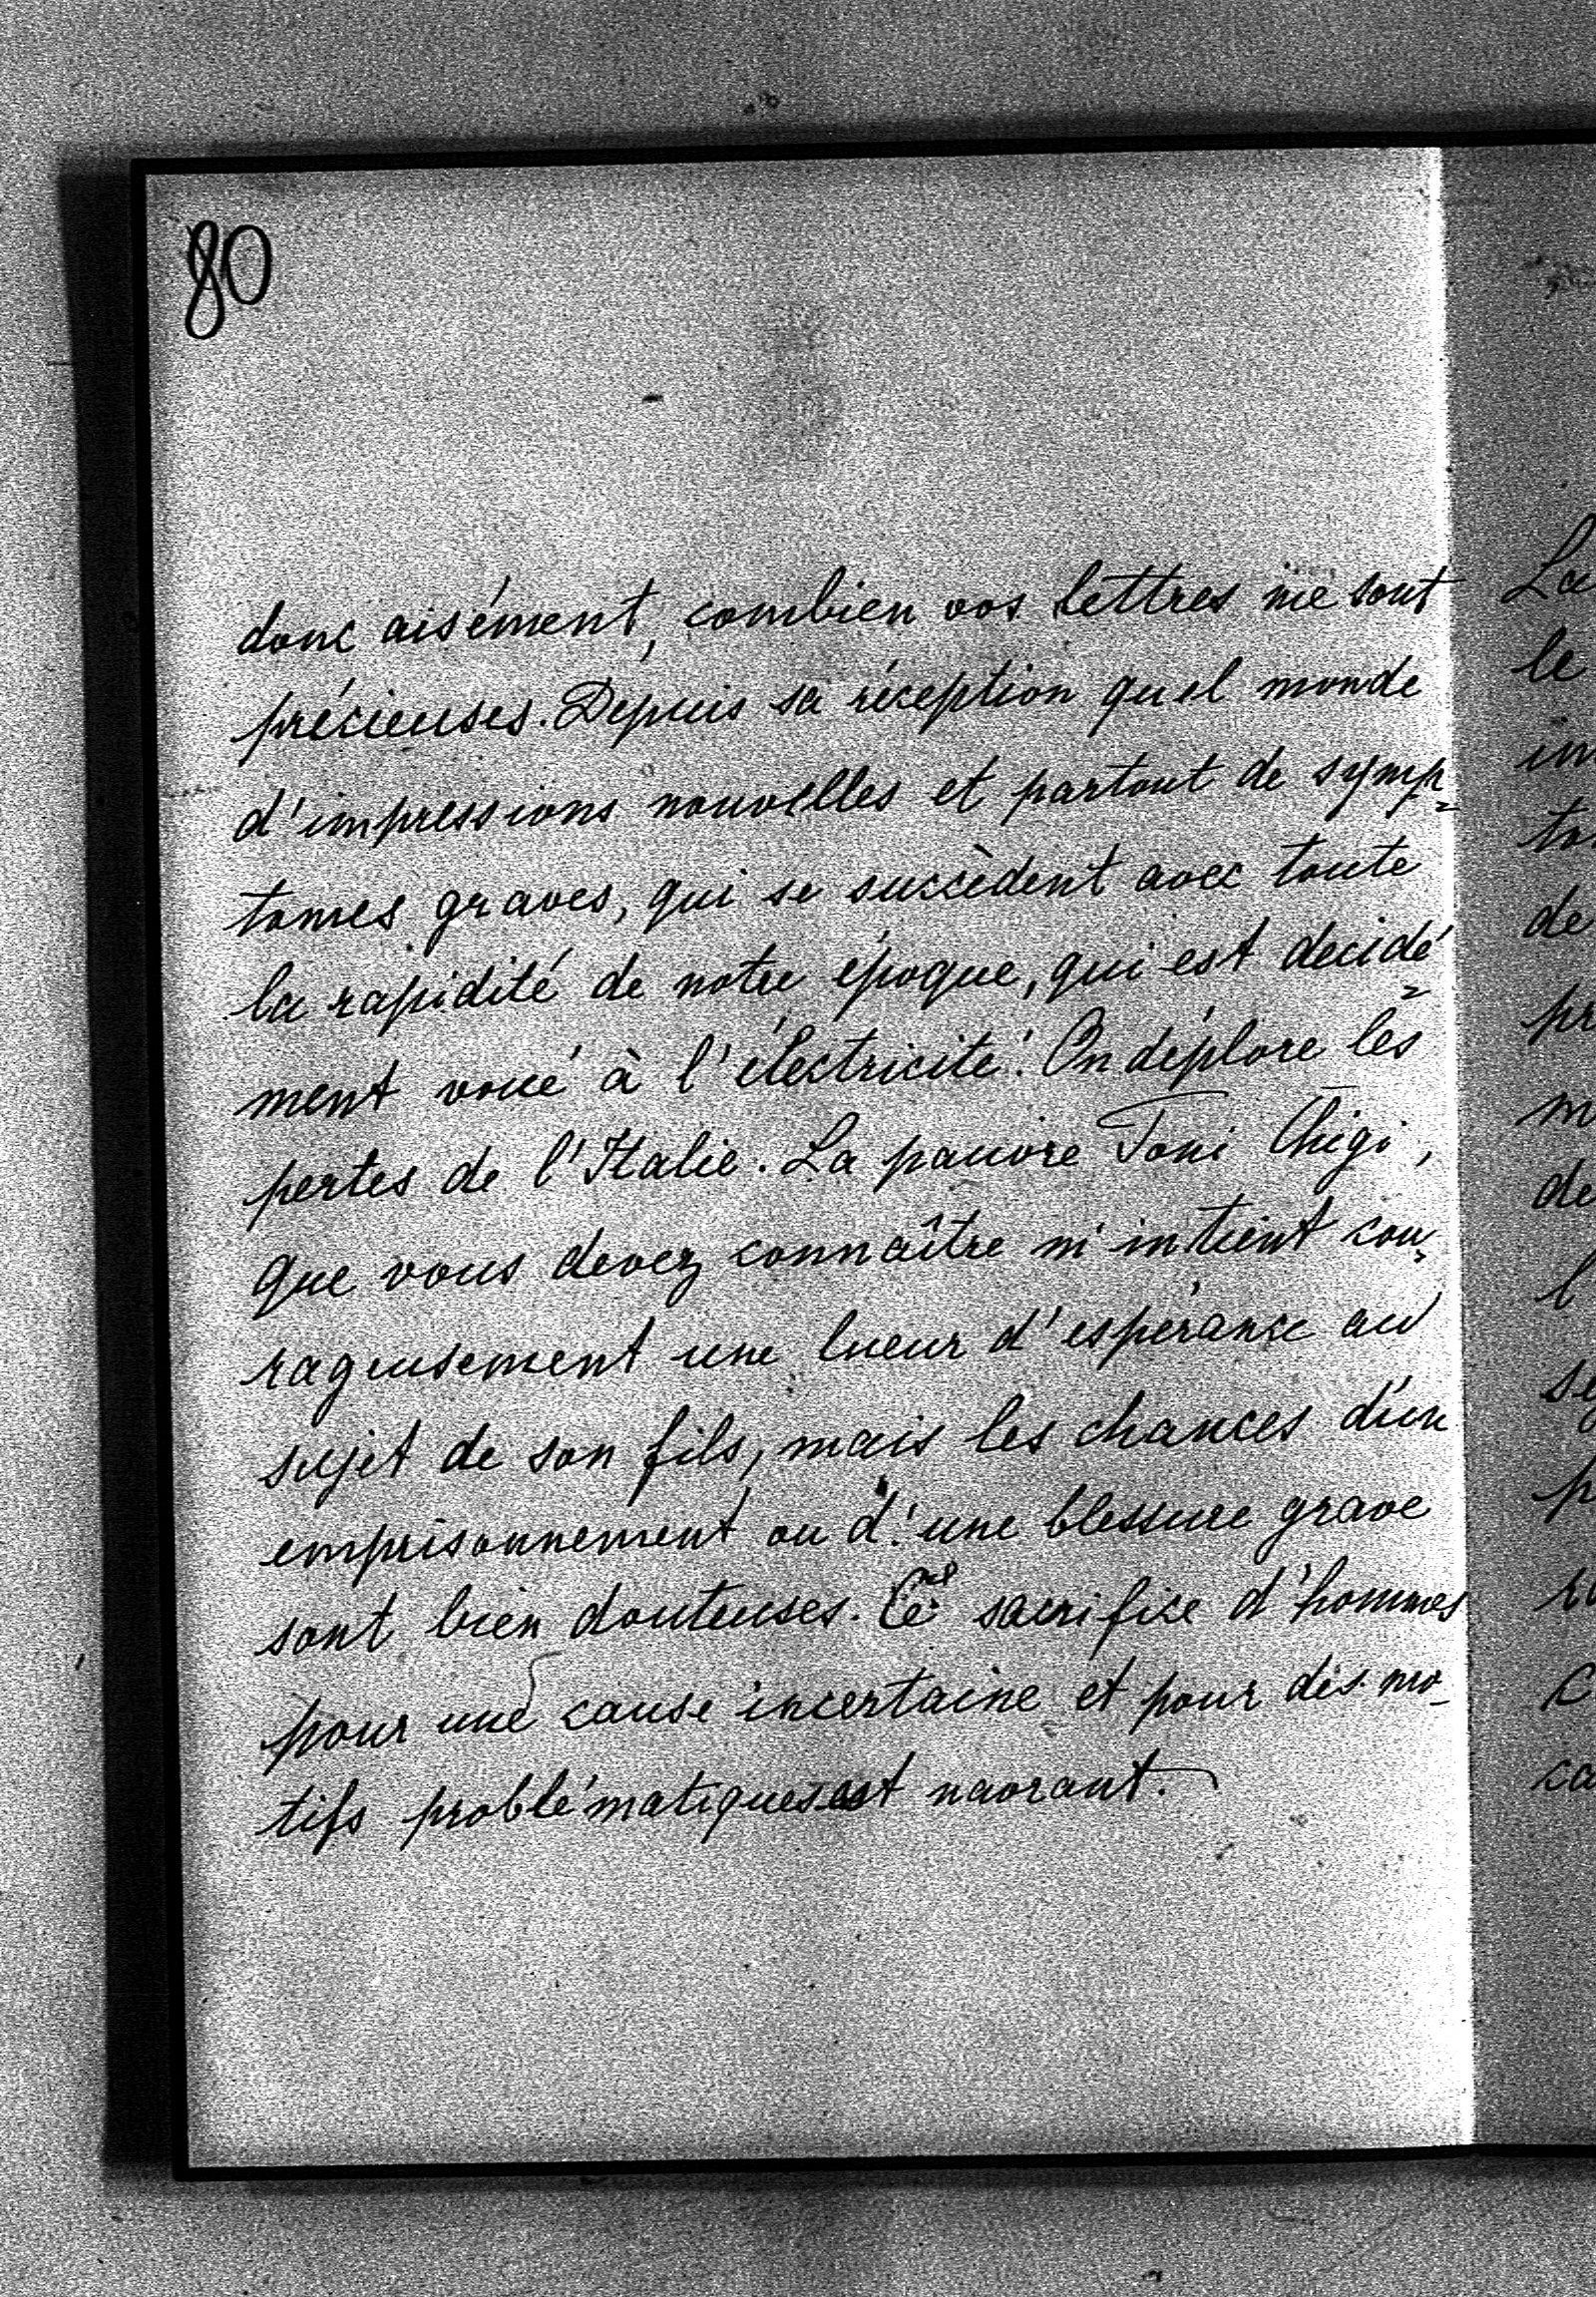 80
donc aisément, combien vos lettres me sont
précieuses. Depuis sa réception quel monde
d'impressions nouvelles et partout de symp=
tomes graves, qui se succèdent avec toute
la rapidité de notre époque, qui est decidé=
ment voué à l'électricité! On déplore les
pertes de l'Italie. La pauvre Toni Chigi,
que vous devez connaître m'intient cou=
rageusement une lueur d'espérance au
sujet de son fils, mais les chances d'un
emprisonnement ou d'une blessure grave
sont bien douteuses. Ce sacrifice d'hommes
pour une cause incertaine et pour des mo-
tifs problématiques est navrant.
La
le
in
to
de
pr
m
de
l
se
p
c
ca